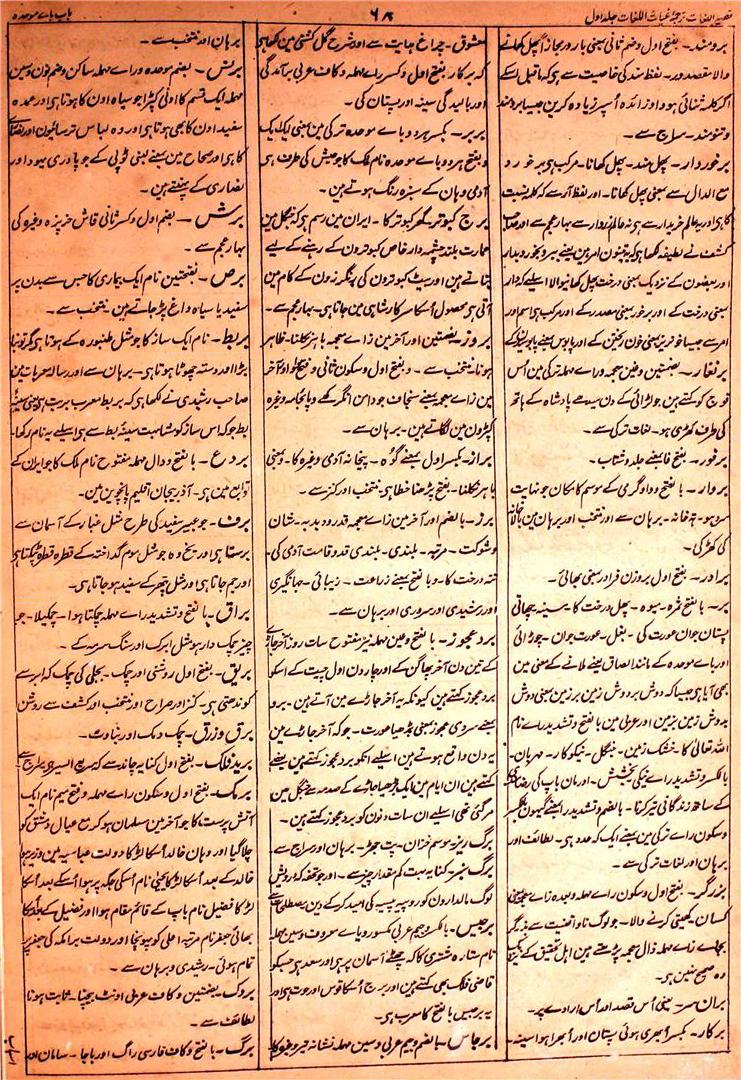 نصیر اللغات ترجمۂ غیاث اللغات جلد اول
۶۸
باب بائے موحدہ
برومند۔ بفتح اول وضم ثانی بمعنی بارور مجازاً پھل کھانے
والا مقصدور۔ لفظ مند کی خاصیت ہے کہ ماقبل اسکے
اگر کلمہ ثنائی ہو واو زائدہ اسپر زیادہ کرین جیسا برومند
و تنومند۔ سراج سے۔
برخوردار۔ پھل مند۔ پھل کھانا۔ مرکب ہی برخورد
مع الدال سے بمعنی پھل کھانا۔ اور لفظ آر سے کہ کلمہ نسبت
اور بعضون کے نزدیک بمعنی درخت پھل کھانیوالا اسلیے کہ دار
بمعنی درخت کے اور برخور بمعنی مصدر کے اور مرکب ہی اسم اور
فوج کو کہتے ہین جو لڑائی کے دن سیدھے پادشاہ کے ہاتھ
کی طرف کھڑی ہو۔ لغات ترکی سے۔
برفور۔ بفتح فا بمعنے جلد و شتاب۔
بروار۔ بالفتح و داوگری کے موسم کا مکان جو نہایت
سرد ہو۔ تہ خانہ۔ برہان سے اور منتخب اور برہان مین بالاخانہ
کی کھڑکی۔
برادر۔ بفتح اول بروزن فرادر بمعنی بھائی۔
بر۔ بالفتح ثمرہ۔ میوہ۔ پھل درخت کا۔ سینہ چھاتی
پستان جوان عورت کی۔ بغل۔ عورت جوان۔ چوڑائی
اور بائے موحدہ کے مانند الصاق یعنے ملانے کے معنی مین
بھی آیا ہی جیسا کہ دوش بردوش زمین برزمین بمعنی دوش
بدوش زمین بزمین اور عربی مین بالفتح و تشدید راے نام
اللہ تعالیٰ کا۔ خشک زمین۔ جنگل۔ نیکوکار۔ مہربان۔
بالکسر و تشدید راے نیکی بخشش۔ اور مان باپ کی رضا
کے ساتھ زندگانی تیر کرنا۔ بالضم و تشدید راے گیہون بالکسر
و سکون راے ترکی مین بمعنے ایک کہ عدد ہی۔ لطائف اور
برہان اور لغات ترکی سے۔
بزرگر۔ بفتح اول و سکون راے مہملہ و بعدہ زاے معجمہ بمعنی
کسان۔ کھیتی کرنے والا۔ جو لوگ ناواقفیت سے بذرگر
بجاے زاے مہملہ ذال معجمہ پڑھتے ہین اہل تحقیق کے نزدیک
وہ صحیح نہین ہی۔
بران سر۔ یعنی اُس قصد اور اُس ارادے پر۔
برکار۔ بکسر اُبھری ہوئی پستان اور اُبھرا ہوا سینہ۔
معشوق۔ چراغ ہدایت سے اور شرح گل کشتی مین لکھا ہی
کہ برکار بفتح اول و کسر راے مہملہ و کاف عربی برآمدگی
اور بالیدگی سینہ اور پستان کی۔
بربر۔ بکسر ہر دو باے موحدہ ترکی مین بمعنی ایک ایک
و بفتح ہر دو باے موحدہ نام ملک کا جو حبش کی طرف ہی
آدمی وہان کے سبزہ رنگ ہوتے ہین۔
برج کبوتر۔ گھر کبوتر کا۔ ایران مین رسم ہی کہ جنگل مین
عمارت بلند چشمہ دار خاص کبوترون کے رہنے کے لیے
بناتے ہین اور بیٹ کبوترون کی رنگریزون کے کام مین
آتی ہی محصول اُسکا سرکار شاہی مین جاتا ہی۔ بہار عجم سے۔
بروز۔ بضمتین اور آخر مین زاے معجمہ باہر نکلنا۔ ظاہر
ہونا۔ منتخب سے۔ و بفتح اول و سکون ثانی و فتح واو و آخر
مین زاے معجمہ بمعنے سنجاف جو دامن انگرکھے و پائجامہ وغیرہ
کپڑون مین لگاتے ہین۔ برہان سے۔
براز۔ بکسر اول بمعنے گوہ۔ پخانہ آدمی وغیرہ کا۔ و بمعنی
باہر نکلنا۔ بفتح پڑھنا خطا ہی۔ منتخب اور کنز سے۔
برز۔ بالضم اور آخر مین زاے معجمہ قد و دبدبہ۔ شان
و شوکت۔ مرتبہ۔ بلندی۔ بلندی قد و قامت آدمی کی۔
تنہ درخت کا۔ و بالفتح بمعنے زراعت۔ زیبائی۔ جہانگیری
اور رشیدی اور سروری اور برہان سے۔
برد عجوز۔ بالفتح و عین مہملہ نیز مفتوح سات روز آخر جاڑے
کے تین دن آخر پھاگن کے اور چار دن اول چیت کے اسکو
برد عجوز کہتے ہین کیونکہ یہ آخر جاڑے مین آتے ہین۔ برد
بمعنے سردی عجوز بمعنی بڑھیا عورت۔ جو کہ آخر جاڑے مین
یہ دن واقع ہوتے ہین اسلیے انکو برد عجوز کہتے ہین بعضے
کہتے ہین ان ایام مین ایک بڑھیا جاڑے کے صدمہ سے جنگل مین
مر گئی تھی اسلیے ان سات دنون کو برد عجوز کہتے ہین۔
برگ ریز۔ موسم خزان۔ پت جھڑ۔ برہان اور سراج سے۔
برگ سبز۔ کنایہ بہت کم مقدار چیز سے۔ اور جو تحفہ کہ درویش
لوگ مالدارون کو روپیہ پیسہ کی امید کر کے دین۔ مصطلحات سے
برجیس۔ بالکسر و جیم عربی مکسور و یاے معروف و سین مہملہ
نام ستارہ مشتری کا کہ چھٹے آسمان پر ہی اور سعد ہی جسکو
قاضی فلک بھی کہتے ہین اور برج اُسکا قوس اور حوت ہی اور
یہ برجیس بالفتح کا معرب ہی۔
برجاس۔ بالضم و جیم عربی و سین مہملہ نشانہ تیر وغیرہ کا۔
برہان اور منتخب سے۔
برنس۔ بضم موحدہ و راے مہملہ ساکن و ضم نون و سین
مہملہ ایک قسم کا اونی کپڑا جو سیاہ اون کا ہوتا ہی اور عمدہ
سفید اون کا بھی ہوتا ہی اور وہ لباس ترسائیون اور نصاریٰ
کا ہی اور صحاح مین بمعنے لمبی ٹوپی کے جو پادری یہود اور
نصاریٰ کے پہنتے ہین۔
برش۔ بضم اول و کسر ثانی قاش خرپزہ وغیرہ کی
بہار عجم سے۔
برص۔ بفتحتین نام ایک بیماری کا جس سے بدن پر
سفید یا سیاہ داغ پڑ جاتے ہین۔ منتخب سے۔
بربط۔ نام ایک ساز کا جو مثل طنبورہ کے ہوتا ہی مگر تونبا
بڑا اور دستہ چھوٹا ہوتا ہی۔ برہان سے اور رسالہ معربات مین
صاحب رشیدی نے لکھا ہی کہ بربط معرب بربت ہی بمعنی سینۂ
بط جو کہ اس ساز کو مشابہت سینۂ بط سے ہی اسلیے یہ نام رکھا۔
بردع۔ بالفتح و دال مہملہ مفتوح نام ملک کا جو ایران کے
توابع مین ہی۔ آذربیجان اقلیم پانچوین مین۔
برف۔ جو چیز سفید کی طرح مثل غبار کے آسمان سے
برستا ہی اور یخ وہ جو مثل موم گداختہ کے قطرہ قطرہ ٹپکتا ہی
اور جم جاتا ہی اور مثل پتھر کے سفید ہو جاتا ہی۔
براق۔ بالفتح و تشدید راے مہملہ چمکتا ہوا۔ چمکیلا۔ جو
چیز چمک دار ہو مثل ابرک اور سنگ سرمہ کے۔
بریق۔ بفتح اول روشنی اور چمک۔ بجلی کی چمک کہ ابر سے
کوندھتی ہی۔ کنز اور صراح اور منتخب اور کشف سے روشن
برق و زرق۔ چمک دمک اور بناوٹ۔
برید فلک۔ بفتح اول کنایہ چاند سے کہ سریع السیر ہی۔ سراج سے
برمک۔ بفتح اول و سکون راے مہملہ و فتح میم نام ایک
آتش پرست کا جو آخر مین مسلمان ہو کر مع عیال دمشق کو
چلا گیا اور وہان خالد اُسکا لڑکا دولت عباسیہ مین وزیر ہوا
خالد کے بعد اُسکا لڑکا یحییٰ نام اُسکی جگہ پر ہوا اُسکے بعد اُسکا
لڑکا فضیل نام باپ کے قائم مقام ہوا اور فضیل کے بعد اُسکا
بھائی جعفر نام مرتبہ اعلی کو پہونچا اور دولت برامکہ کی جعفر پر
تمام ہوئی۔ رشیدی و برہان سے۔
بروک۔ بضمتین و کاف عربی اونٹ بیٹھنا۔ ثابت ہونا
لطائف سے۔
برگ۔ بالفتح و کاف فارسی راگ اور باجا۔ سامان اور